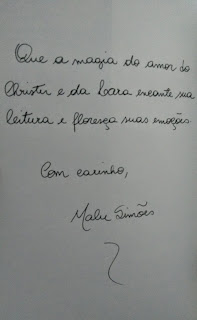 Que a magia do amor do
Christer e da Lara encante sua
leitura e floresça suas emoções
Com carinho,
Malu Simões